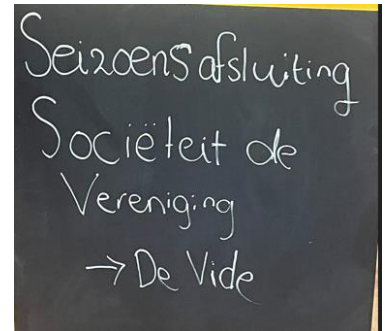 Seizoensafsluiting
Sociëteit de
Vereniging
→ De Vide